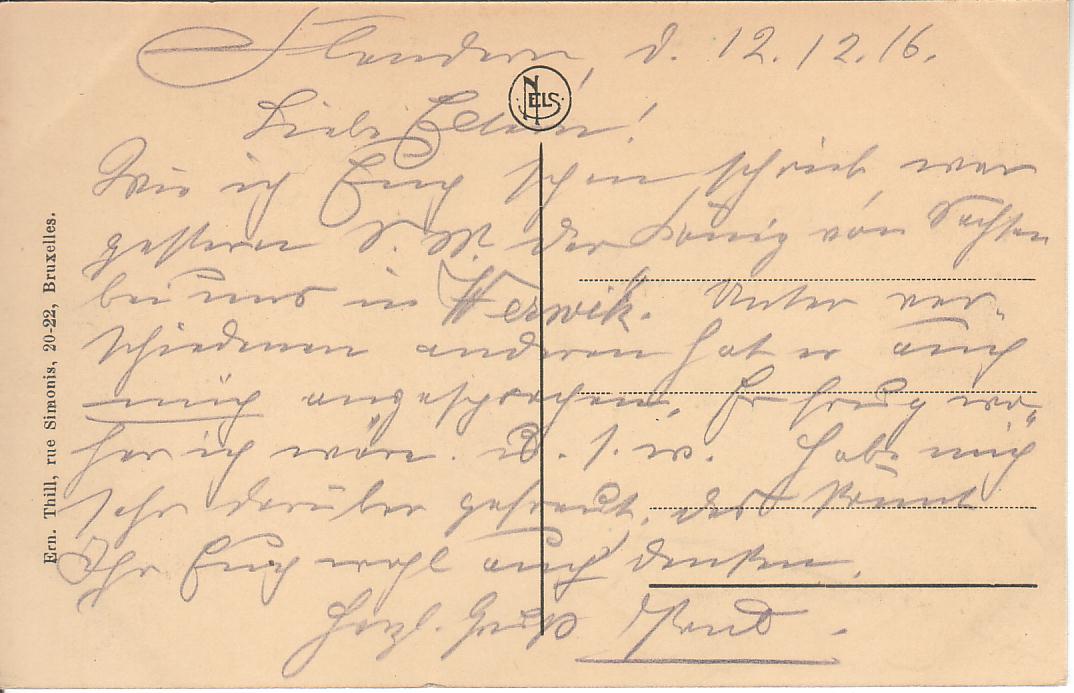 Flandern, d. 12.12.16.
NELS
Liebe Eltern!
Wie ich Euch schon schrieb, war
gestern S. M. der König von Sachsen
bei uns in Werwik. Unter ver-
schiedenen anderen hat er auch
mich angesprochen. Er frug wo-
her ich wäre. u. s. w. Habe mich
sehr darüber gefreut, das könnt
Ihr Euch wohl auch denken.
Herzl. Gruß
Ern. Thill, rue Simonis, 20-22, Bruxelles.